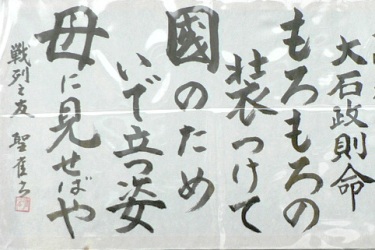 大石政則命
もろもろの
装つけて
國のため
いで立つ姿
母に見せばや
戦列之友